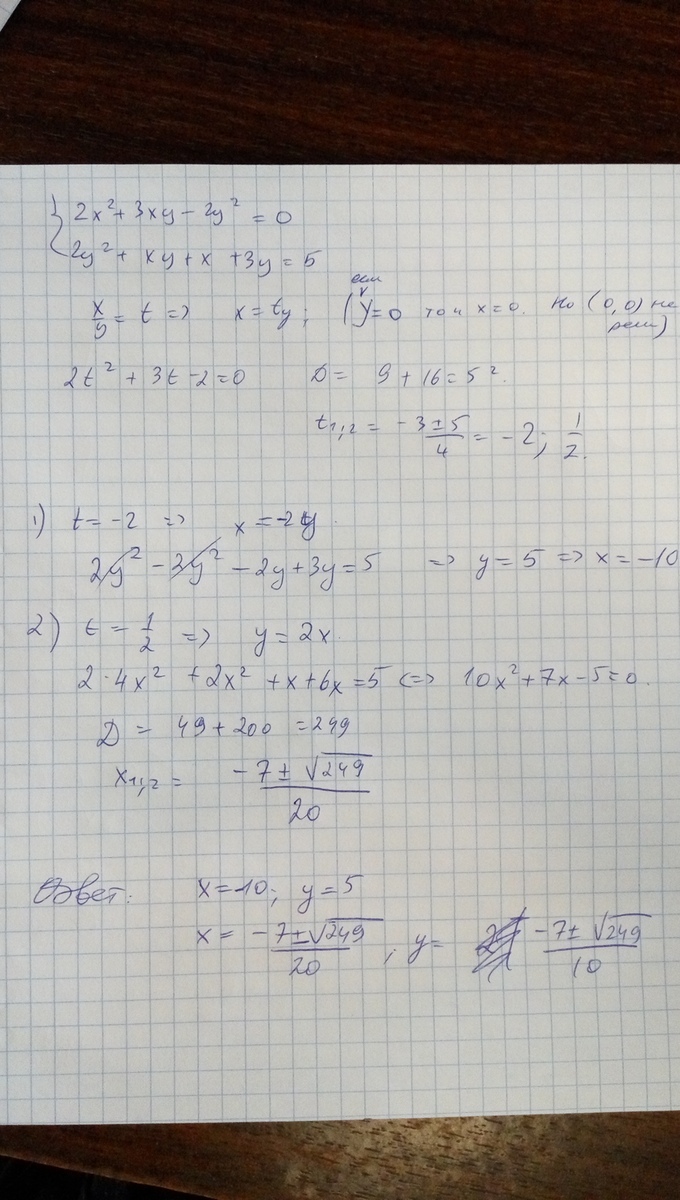 { 2x² + 3xy - 2y² = 0
2y² + xy + x + 3y = 5
x/y = t => x = ty; (если y=0 то и x=0. Но (0,0) не реш)
2t² + 3t - 2 = 0 D = 9 + 16 = 5².
t₁,₂ = (-3 ± 5)/4 = -2; 1/2.
1) t = -2 => x = -2y.
2y² - 3y² - 2y + 3y = 5 => y = 5 => x = -10
2) t = 1/2 => y = 2x.
2·4x² + 2x² + x + 6x = 5 <=> 10x² + 7x - 5 = 0.
D = 49 + 200 = 249
x₁,₂ = (-7 ± √249)/20
Ответ: x = -10; y = 5
x = (-7 ± √249)/20 ; y = (-7 ± √249)/10